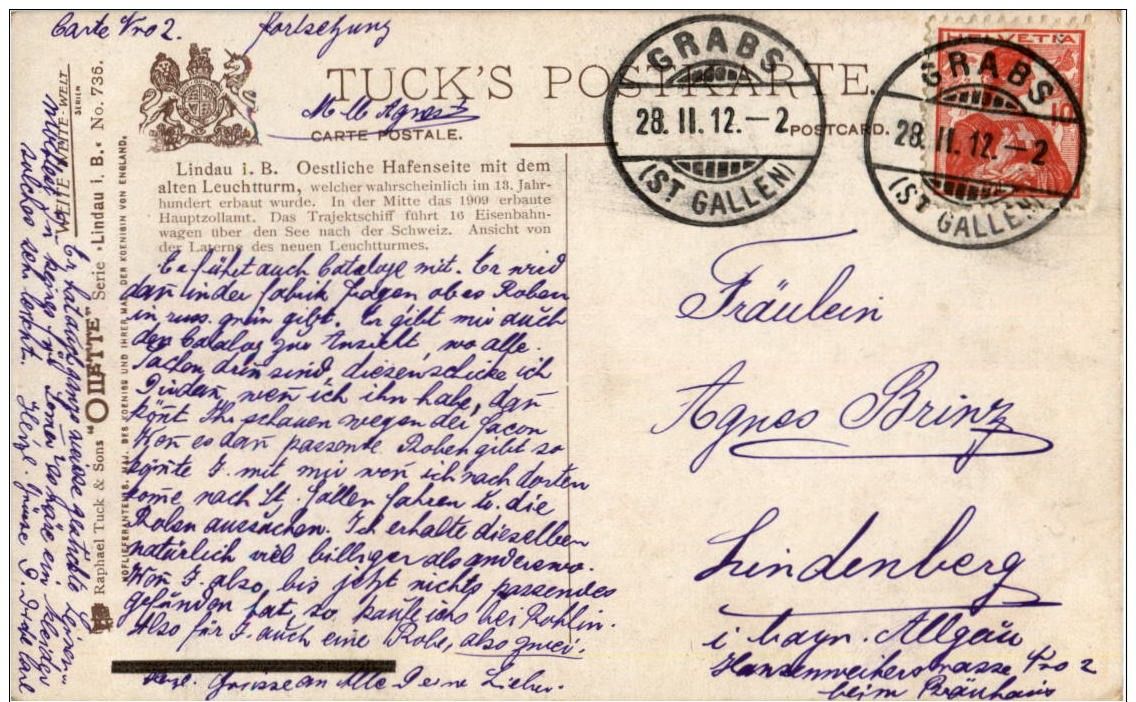 Carte Nro 2. Fortsetzung
TUCK'S POSTKARTE.
CARTE POSTALE.
POSTCARD.
M-lle Agnes
GRABS
28.II.12.–2
(ST GALLEN)
HELVETIA
10
GRABS
28.II.12.–2
(ST GALLEN)
Lindau i. B. Oestliche Hafenseite mit dem
alten Leuchtturm, welcher wahrscheinlich im 13. Jahr-
hundert erbaut wurde. In der Mitte das 1909 erbaute
Hauptzollamt. Das Trajektschiff führt 16 Eisenbahn-
wagen über den See nach der Schweiz. Ansicht von
der Laterne des neuen Leuchtturmes.
Er führt auch Cataloge mit. Er wird
dan̄ in der Fabrik fragen ob es Roben
in russ. grün gibt. Er gibt mir auch
den Catalog zur Ansicht, wo alle
Sachen drin sind diesen schicke ich
wen̄ ich ihn habe, dan̄
kön̄t Ihr schauen wegen der Facon
Wen̄ es dan̄ passende Roben gibt so
kön̄te J. mit mir wen̄ ich nach dorten
kom̄e nach St. Gallen fahren u. die
Roben aussuchen. Ich erhalte dieselben
natürlich viel billiger als anderswo.
Wen̄ J. also bis jetzt nichts passendes
gefunden hat, so kaufe ich bei Rohlin.
Also für J. auch eine Robe, also zwei.
Herzl. Grüsse an Alle Deine Lieben.
Er hat auch ganz weisse gestickte
solches sehr leicht. Herzl. Grüsse Carl
WEITE-WELT
SERIEN
Raphael Tuck & Sons "OILETTE" Serie "Lindau i. B." No. 736.
HOFLIEFERANTEN IHRER MAJ. DES KOENIGS UND IHRER MAJ. DER KOENIGIN VON ENGLAND.
Fräulein
Agnes Brinz
Lindenberg
i bayr. Allgäu
Hansenweiherstrasse Nro 2
beim Bräuhaus